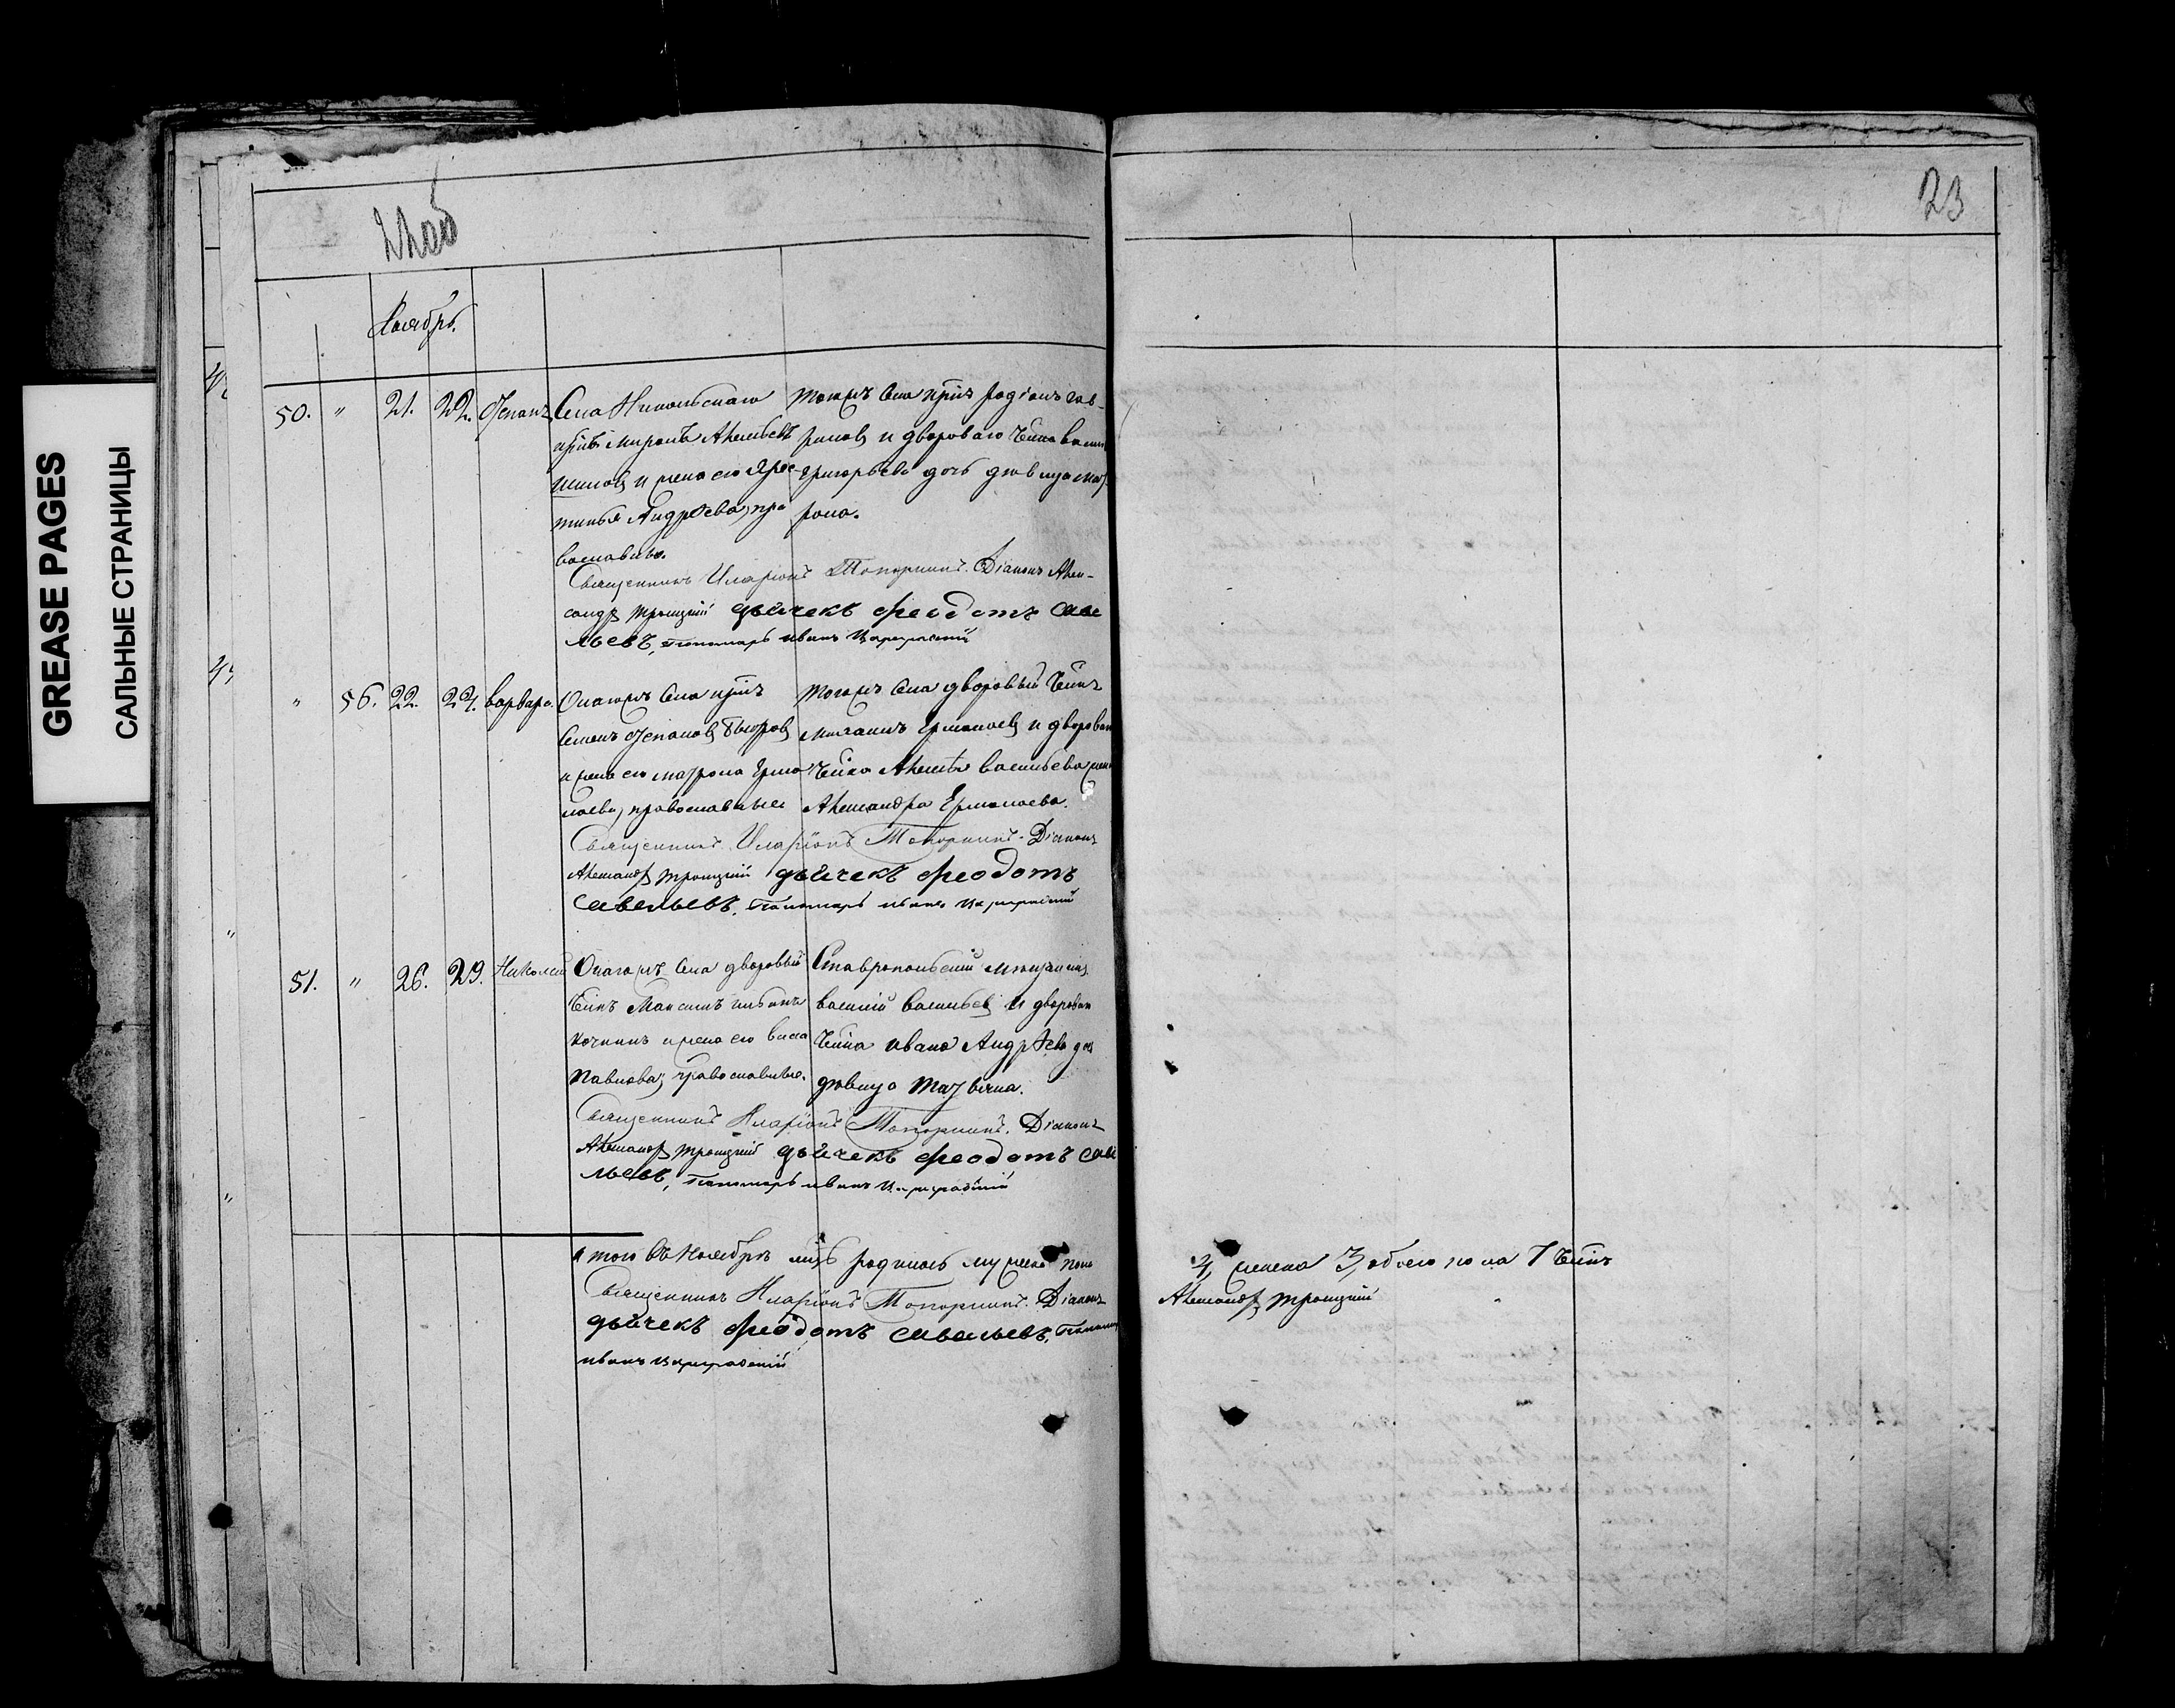 GREASE PAGES
САЛЬНЫЕ СТРАНИЦЫ
22об
23
Ноябрь.
50. " 21. 22. Степанъ
Села Никольскаго
крін Миронъ Алексѣевъ
и жена его
тинья Андрѣева, пра
вославные.
тогожъ села крін Родіонъ Гав-
риловъ и двороваго чѣлка Васил
Григорьева дочь дѣвица Мат-
рона.
Священникъ Иларіонъ Топорнинъ. Діаконъ Алек-
сандръ Троицкій дьячекъ Феодотъ Саве
льевъ, Пономарь Иванъ Цареградскій
" 56. 22. 24. Варвара.
Онагожъ села крін
Семенъ Степановъ
и жена его Матрона Ермо
лаева, православные
тогожъ села дворовый чѣлкъ
Ермолаевъ и двороваго
чѣлка Алексѣя Васильева жена
Александра Ермолаева.
Священникъ Иларіонъ Топорнинъ. Діаконъ
Александръ Троицкій дьячекъ Феодотъ
Савельевъ. Пономарь Иванъ Цареградскій
51. " 26. 29. Николай
Онагожъ села дворовый
чѣлкъ Максимъ
и жена его Васса
Павлова, православные.
Ставропольскій мѣщанинъ
Василій Васильевъ и двороваго
чѣлка Ивана Андрѣева доч
дѣвица Татьяна.
Священникъ Иларіонъ Топорнинъ. Діаконъ
Александръ Троицкій дьячекъ Феодотъ Саве
льевъ, Пономарь Иванъ Цареградскій
Итого въ Ноябрѣ мцѣ родилось мужеска пола
4, женска 3, обоего пола 7 чѣлкъ
Священникъ Иларіонъ Топорнинъ. Діаконъ
Александръ Троицкій
дьячекъ Феодотъ Савельевъ, Пономарь
Иванъ Цареградскій